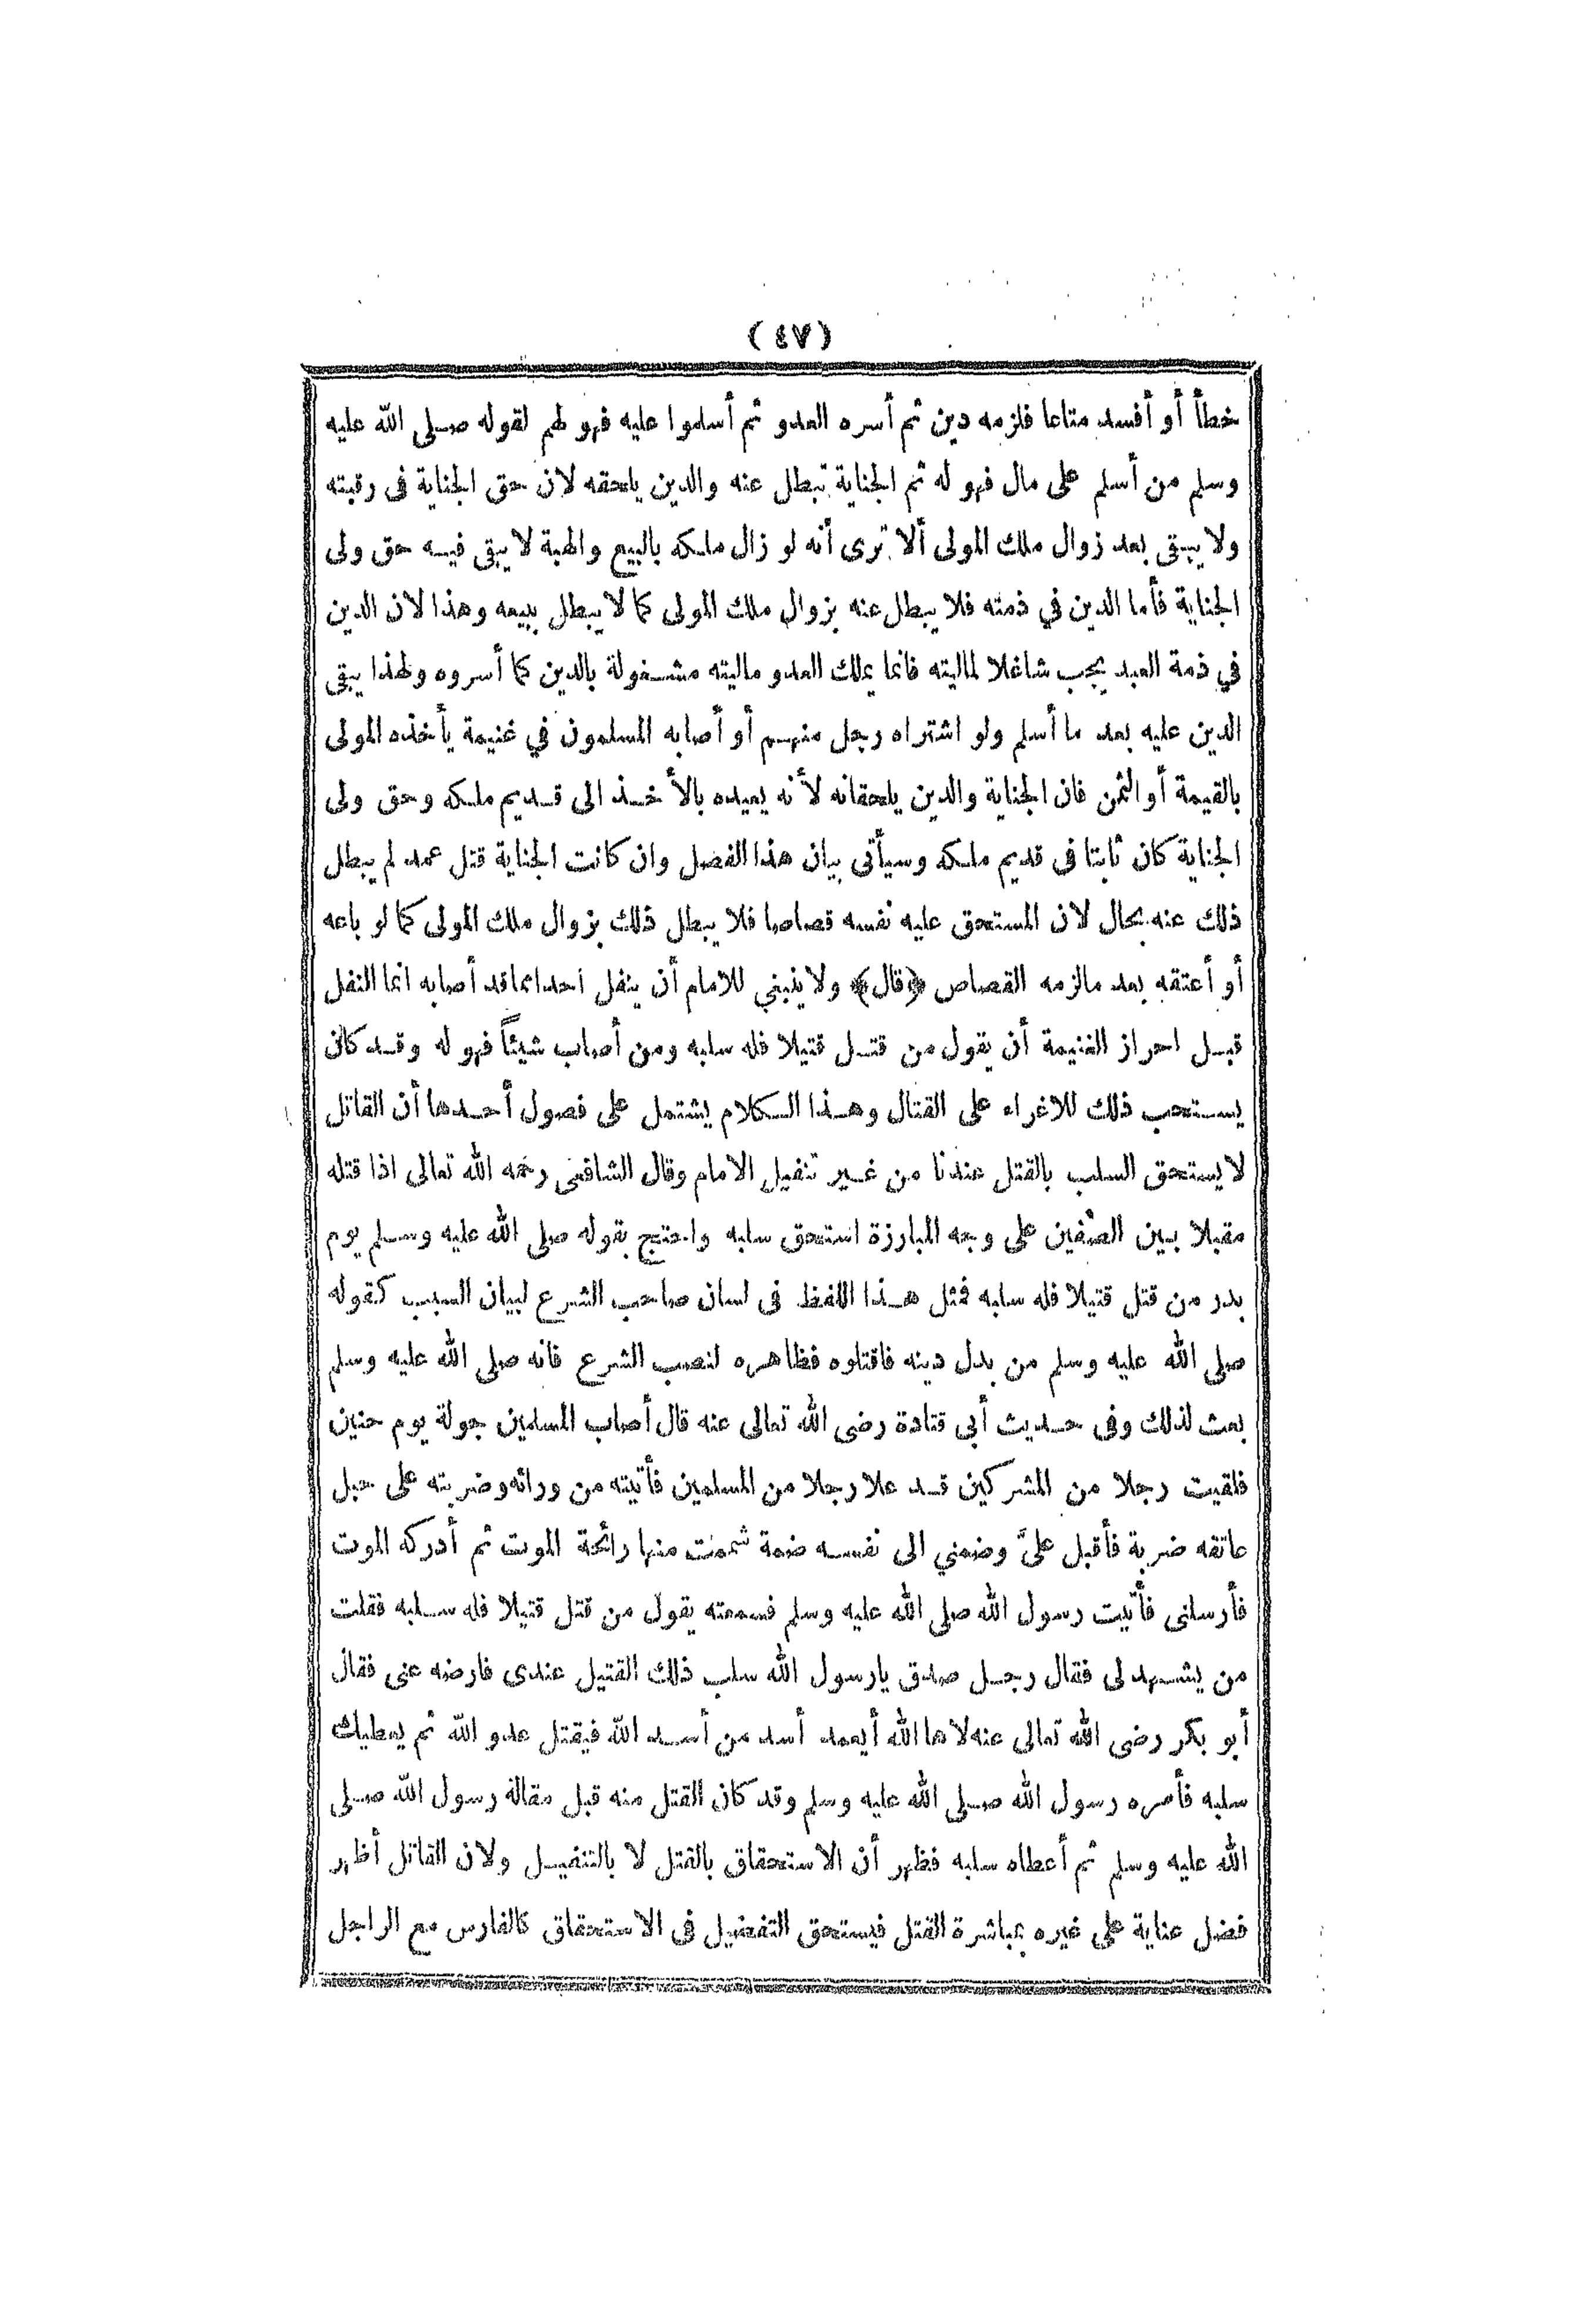 (٤٧)
خطأ أو أفسد متاعا فلزمه دين ثم أسره العدو ثم أسلموا عليه فهو لهم لقوله صلى الله عليه
وسلم من أسلم على مال فهو له ثم الجناية تبطل عنه والدين يلحقه لان حق الجناية فى رقبته
ولا يبقى بعد زوال ملك المولى ألا ترى أنه لو زال ملكه بالبيع والهبة لا يبقى فيه حق ولى
الجناية فأما الدين في ذمته فلا يبطل عنه بزوال ملك المولى كما لا يبطل ببيعه وهذا لان الدين
في ذمة العبد يجب شاغلا لماليته فانما يملك العدو ماليته مشغولة بالدين كما أسروه ولهذا يبقى
الدين عليه بعد ما أسلم ولو اشتراه رجل منهم أو أصابه المسلمون في غنيمة يأخذه المولى
بالقيمة أو الثمن فان الجناية والدين يلحقانه لأنه يعيده بالأخذ الى قديم ملكه وحق ولى
الجناية كان ثابتا فى قديم ملكه وسيأتى بيان هذا الفصل وان كانت الجناية قتل عمد لم يبطل
ذلك عنه بحال لان المستحق عليه نفسه قصاصا فلا يبطل ذلك بزوال ملك المولى كما لو باعه
أو أعتقه بعد مالزمه القصاص ﴿قال﴾ ولا ينبغي للامام أن ينفل احدا مما قد أصابه انما النفل
قبل احراز الغنيمة أن يقول من قتل قتيلا فله سلبه ومن أصاب شيئاً فهو له وقد كان
يستحب ذلك للاغراء على القتال وهذا الكلام يشتمل على فصول أحدها أن القاتل
لا يستحق السلب بالقتل عندنا من غير تنفيل الامام وقال الشافعى رحمه الله تعالى اذا قتله
مقبلا بين الصفين على وجه المبارزة استحق سلبه واحتج بقوله صلى الله عليه وسلم يوم
بدر من قتل قتيلا فله سلبه فمثل هذا اللفظ فى لسان صاحب الشرع لبيان السبب كقوله
صلى الله عليه وسلم من بدل دينه فاقتلوه فظاهره لنصب الشرع فانه صلى الله عليه وسلم
بعث لذلك وفى حديث أبى قتادة رضى الله تعالى عنه قال أصاب المسلمين جولة يوم حنين
فلقيت رجلا من المشركين قد علا رجلا من المسلمين فأتيته من ورائه وضربته على حبل
عاتقه ضربة فأقبل علىّ وضمني الى نفسه ضمة شممت منها رائحة الموت ثم أدركه الموت
فأرسلنى فأتيت رسول الله صلى الله عليه وسلم فسمعته يقول من قتل قتيلا فله سلبه فقلت
من يشهد لى فقال رجل صدق يارسول الله سلب ذلك القتيل عندى فارضه عنى فقال
أبو بكر رضى الله تعالى عنه لاها الله أيعمد أسد من أسد الله فيقتل عدو الله ثم يعطيك
سلبه فأمره رسول الله صلى الله عليه وسلم وقد كان القتل منه قبل مقالة رسول الله صلى
الله عليه وسلم ثم أعطاه سلبه فظهر أن الاستحقاق بالقتل لا بالتنفيل ولان القاتل أظهر
فضل عناية على غيره بمباشرة القتل فيستحق التفضيل فى الاستحقاق كالفارس مع الراجل